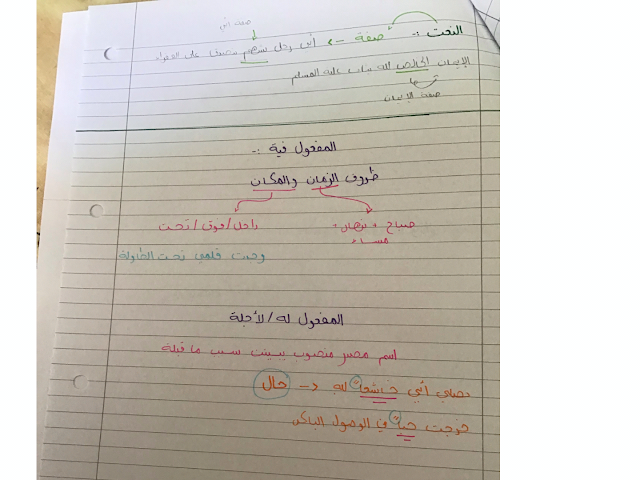 صفة أبي
النعت :- صفة -> أبي رجل شهم يتصدق على الفقراء
الإيمان الخالص لله يثاب عليه المسلم
صفة الإيمان
المفعول فية :-
ظروف الزمان والمكان
صباح + نهار + داخل / فوق / تحت
مساء
وجدت قلمي تحت الطاولة
المفعول له / لأجلة
اسم مصدر منصوب يبين سبب ما قبلة
يصلي أبي خاشعاً لله -> حال
خرجت حباً في الوصول الباكر